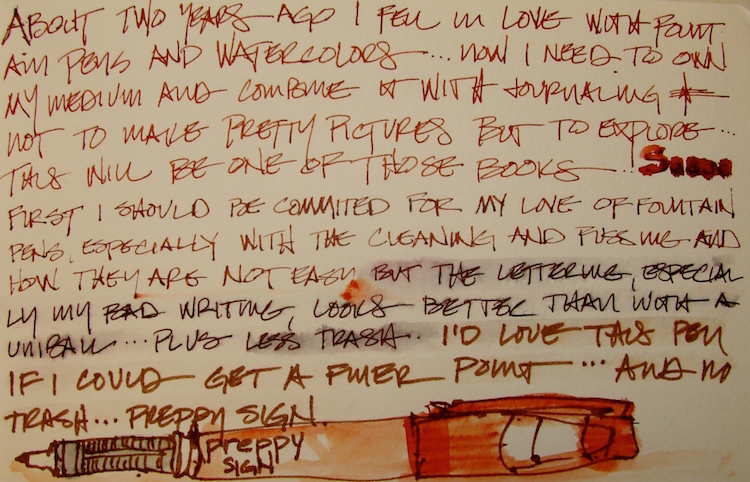 ABOUT TWO YEARS AGO I FELL IN LOVE WITH FOUNT
AIN PENS AND WATERCOLORS... NOW I NEED TO OWN
MY MEDIUM AND COMBINE IT WITH JOURNALING
NOT TO MAKE PRETTY PICTURES BUT TO EXPLORE...
THIS WILL BE ONE OF THOSE BOOKS...
FIRST I SHOULD BE COMMITED FOR MY LOVE OF FOUNTAIN
PENS, ESPECIALLY WITH THE CLEANING AND FUSSING AND
HOW THEY ARE NOT EASY BUT THE LETTERING, ESPECIAL
LY MY BAD WRITING, LOOKS BETTER THAN WITH A
UNIBALL... PLUS LESS TRASH. I'D LOVE THIS PEN
IF I COULD GET A FINER POINT... AND NO
TRASH... PREPPY SIGN.
preppy
SIGN